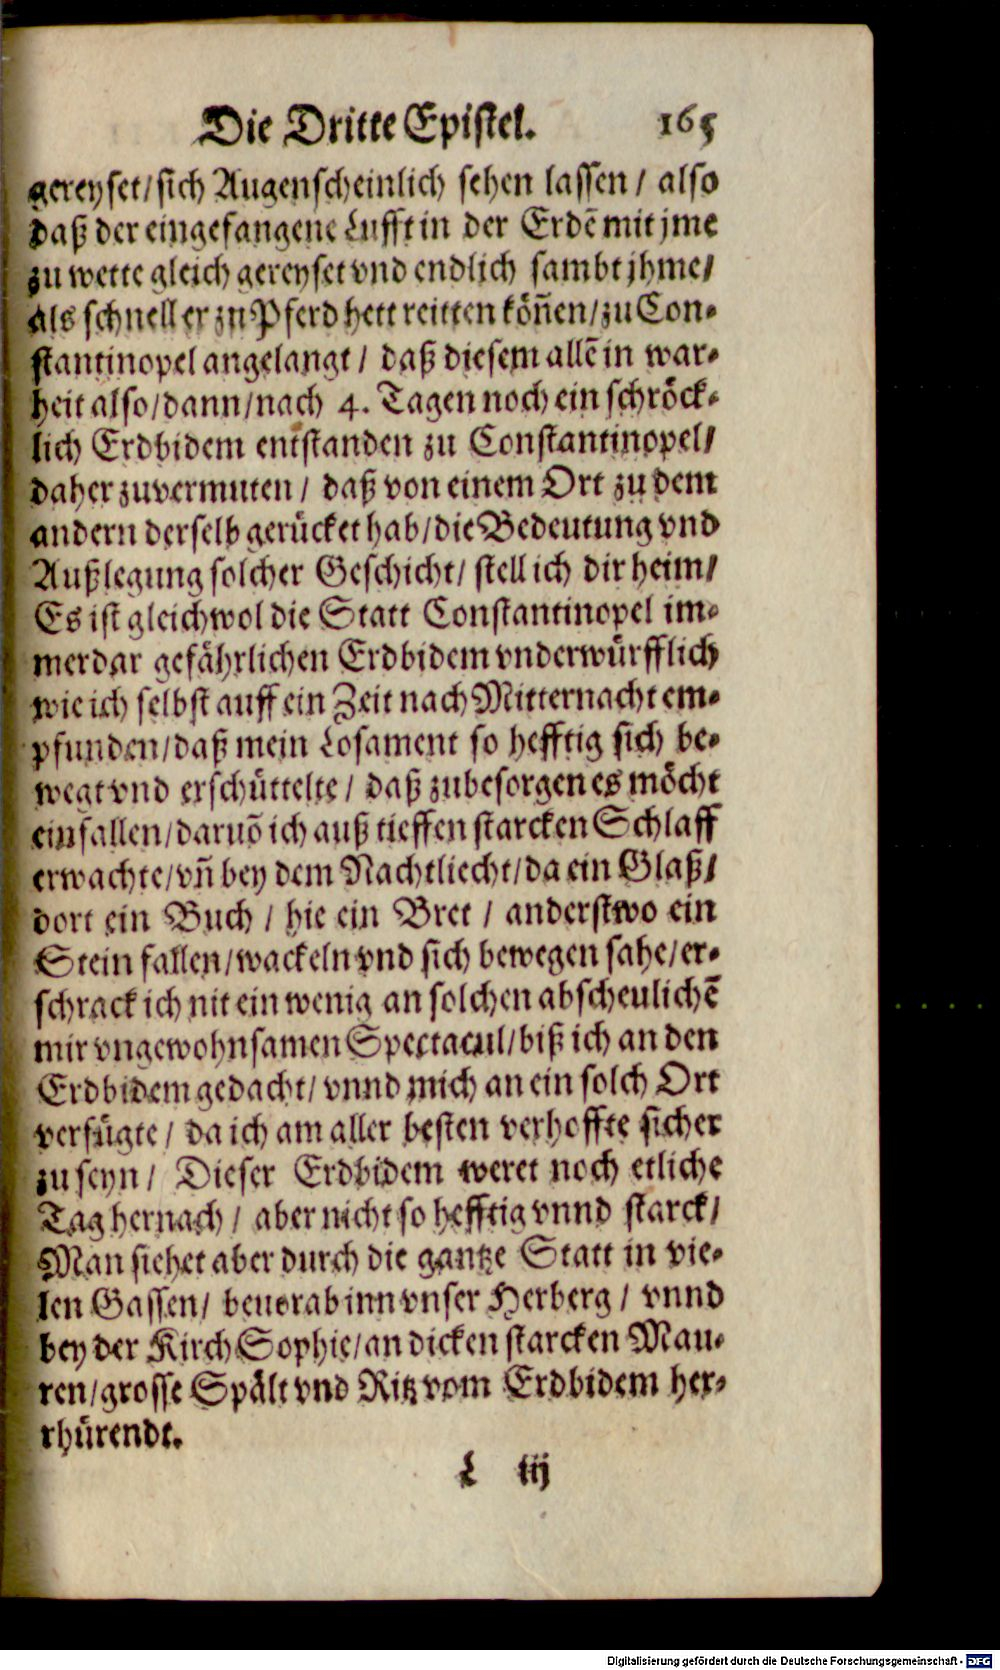 Die Dritte Epistel. 165
gereyset/sich Augenscheinlich sehen lassen / also
daß der eingefangene Lufft in der Erdē mit jme
zu wette gleich gereyset vnd endlich sambt jhme/
als schnell er zu Pferd hett reitten köñen/zu Con-
stantinopel angelangt / daß diesem allē in war-
heit also/dann/nach 4. Tagen noch ein schröck-
lich Erdbidem entstanden zu Constantinopel/
daher zuvermuten / daß von einem Ort zu dem
andern derselb gerücket hab/die Bedeutung vnd
Außlegung solcher Geschicht/ stell ich dir heim/
Es ist gleichwol die Statt Constantinopel im-
merdar gefährlichen Erdbidem vnderwürfflich
wie ich selbst auff ein Zeit nach Mitternacht em-
pfunden/daß mein Losament so hefftig sich be-
wegt vnd erschüttelte / daß zubesorgen es möcht
einfallen/daruō ich auß tieffen starcken Schlaff
erwachte/vñ bey dem Nachtliecht/da ein Glaß/
dort ein Buch / hie ein Bret / anderstwo ein
Stein fallen/wackeln vnd sich bewegen sahe/er-
schrack ich nit ein wenig an solchen abscheulichē
mir vngewohnsamen Spectacul/biß ich an den
Erdbidem gedacht/ vnnd mich an ein solch Ort
verfügte / da ich am aller besten verhoffte sicher
zu seyn / Dieser Erdbidem weret noch etliche
Tag hernach / aber nicht so hefftig vnnd starck/
Man siehet aber durch die gantze Statt in vie-
len Gassen/ beuorab inn vnser Herberg / vnnd
bey der Kirch Sophie/an dicken starcken Mau-
ren/grosse Spält vnd Ritz vom Erdbidem her-
rhürendt.
L iij
Digitalisierung gefördert durch die Deutsche Forschungsgemeinschaft - DFG